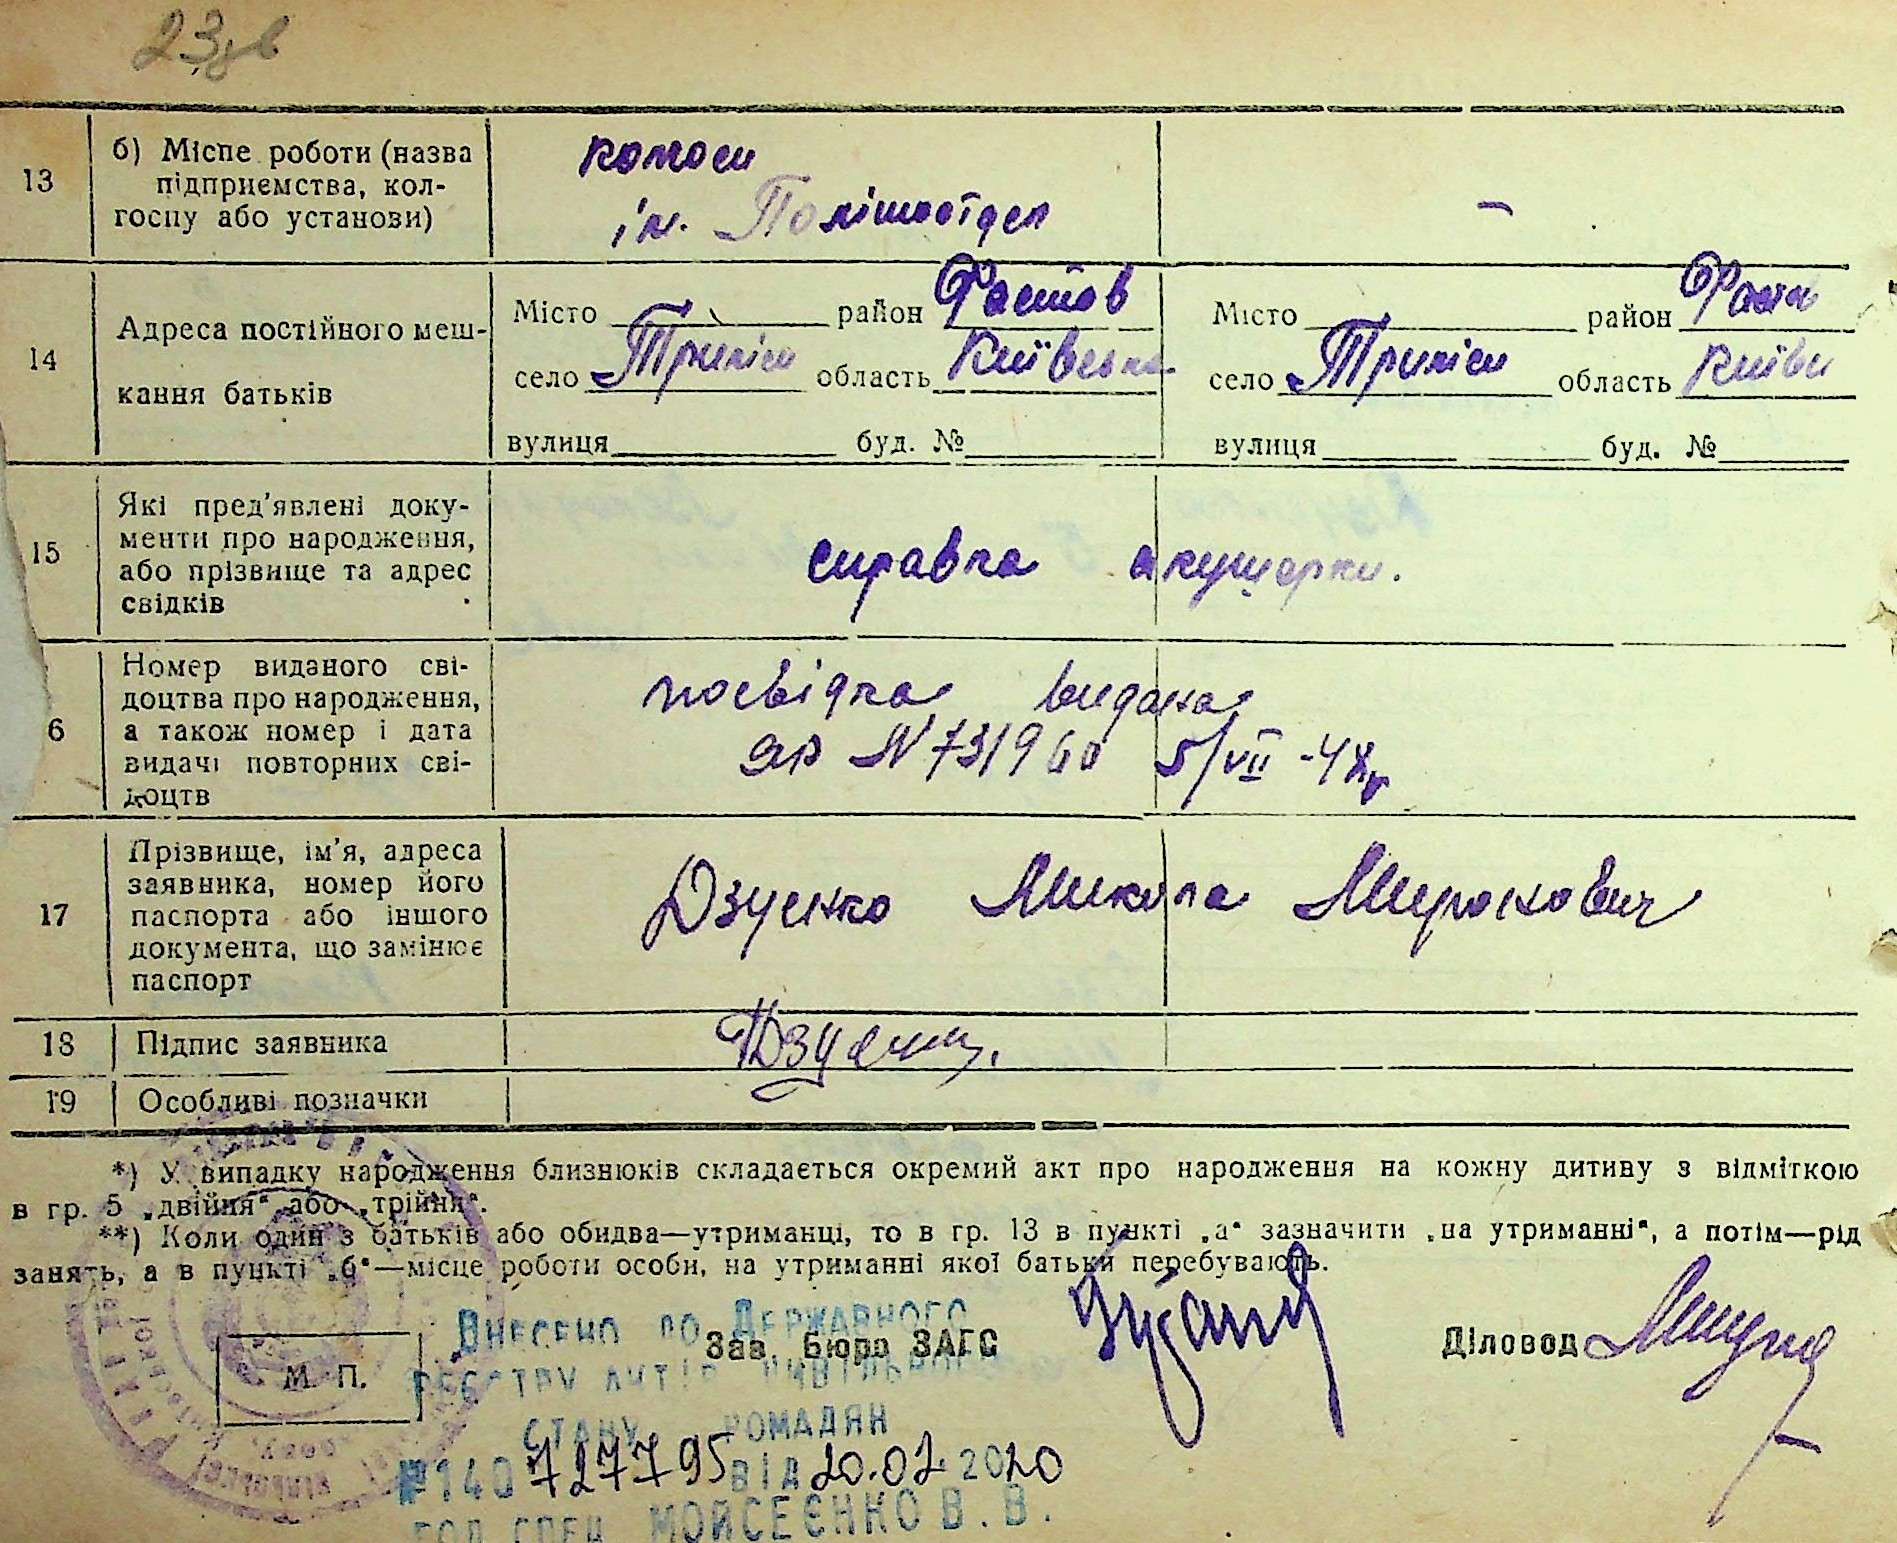 23зв
13
б) Місце роботи (назва
підприємства, кол-
госпу або установи)
колгосп
ім. Політвідділ
–
14
Адреса постійного меш-
кання батьків
Місто район Фастів
село Триліси область Київська
вулиця буд. №
Місто район Фасті
село Триліси область Київ
вулиця буд. №
15
Які пред'явлені доку-
менти про народження,
або прізвище та адрес
свідків
справка акушерки.
6
Номер виданого сві-
доцтва про народження,
а також номер і дата
видачі повторних сві-
доцтв
посвідка видана
N 731960 5/VII -48р
17
Прізвище, ім'я, адреса
заявника, номер його
паспорта або іншого
документа, що замінює
паспорт
Дзусенко Микола Миронович
18
Підпис заявника
19
Особливі позначки
*) У випадку народження близнюків складається окремий акт про народження на кожну дитину з відміткою
в гр. 5 „двійня“ або „трійня“.
**) Коли один з батьків або обидва—утриманці, то в гр. 13 в пункті „а“ зазначити „на утриманні“, а потім—рід
занять, а в пункті „б“—місце роботи особи, на утриманні якої батьки перебувають.
Внесено до Державного
Зав. Бюро ЗАГС
Діловод
реєстру актів цивільного
М П.
стану громадян
№140 727795 від 20.02.2020
гол.спец. МОЙСЕЄНКО В.В.